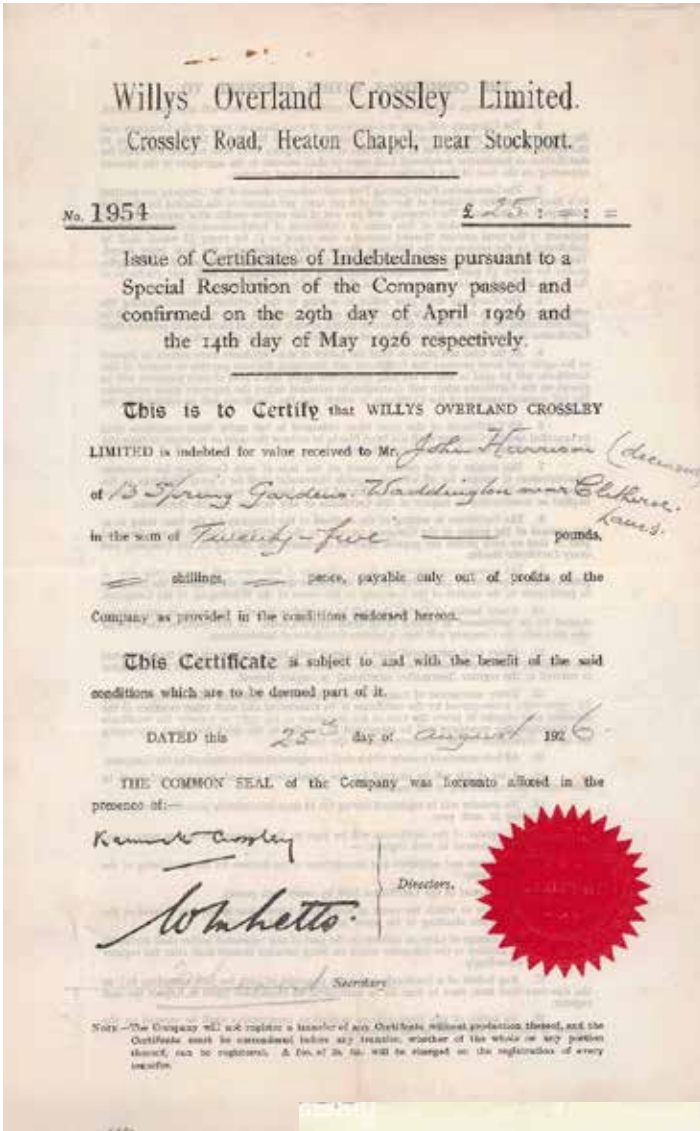 Willys Overland Crossley Limited.
Crossley Road, Heaton Chapel, near Stockport.
No. 1954 £ 25 : = : =
Issue of Certificates of Indebtedness pursuant to a
Special Resolution of the Company passed and
confirmed on the 29th day of April 1926 and
the 14th day of May 1926 respectively.
This is to Certify that WILLYS OVERLAND CROSSLEY
LIMITED is indebted for value received to Mr. John Harrison
of 13 Spring Gardens. Waddington near Clitheroe.
Lancs.
in the sum of Twenty-five pounds,
shillings, pence, payable only out of profits of the
Company as provided in the conditions endorsed hereon.
This Certificate is subject to and with the benefit of the said
conditions which are to be deemed part of it.
DATED this 25th day of August 1926.
THE COMMON SEAL of the Company was hereunto affixed in the
presence of:—
Kenneth Crossley
Directors.
Secretary
NOTE.—The Company will not register a transfer of any Certificate without production thereof, and the
Certificate must be surrendered before any transfer, whether of the whole or any portion
thereof, can be registered. A fee of 2s. 6d. will be charged on the registration of every
transfer.